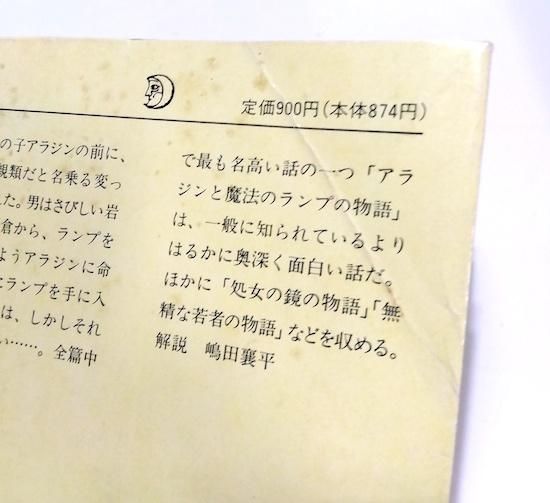 定価900円(本体874円)
の子アラジンの前に、
親類だと名乗る変っ
た。男はさびしい岩
倉から、ランプを
ようアラジンに命
ランプを手に入
は、しかしそれ
い……。全篇中
で最も名高い話の一つ「アラ
ジンと魔法のランプの物語」
は、一般に知られているより
はるかに奥深く面白い話だ。
ほかに「処女の鏡の物語」「無
精な若者の物語」などを収める。
解説 嶋田襄平